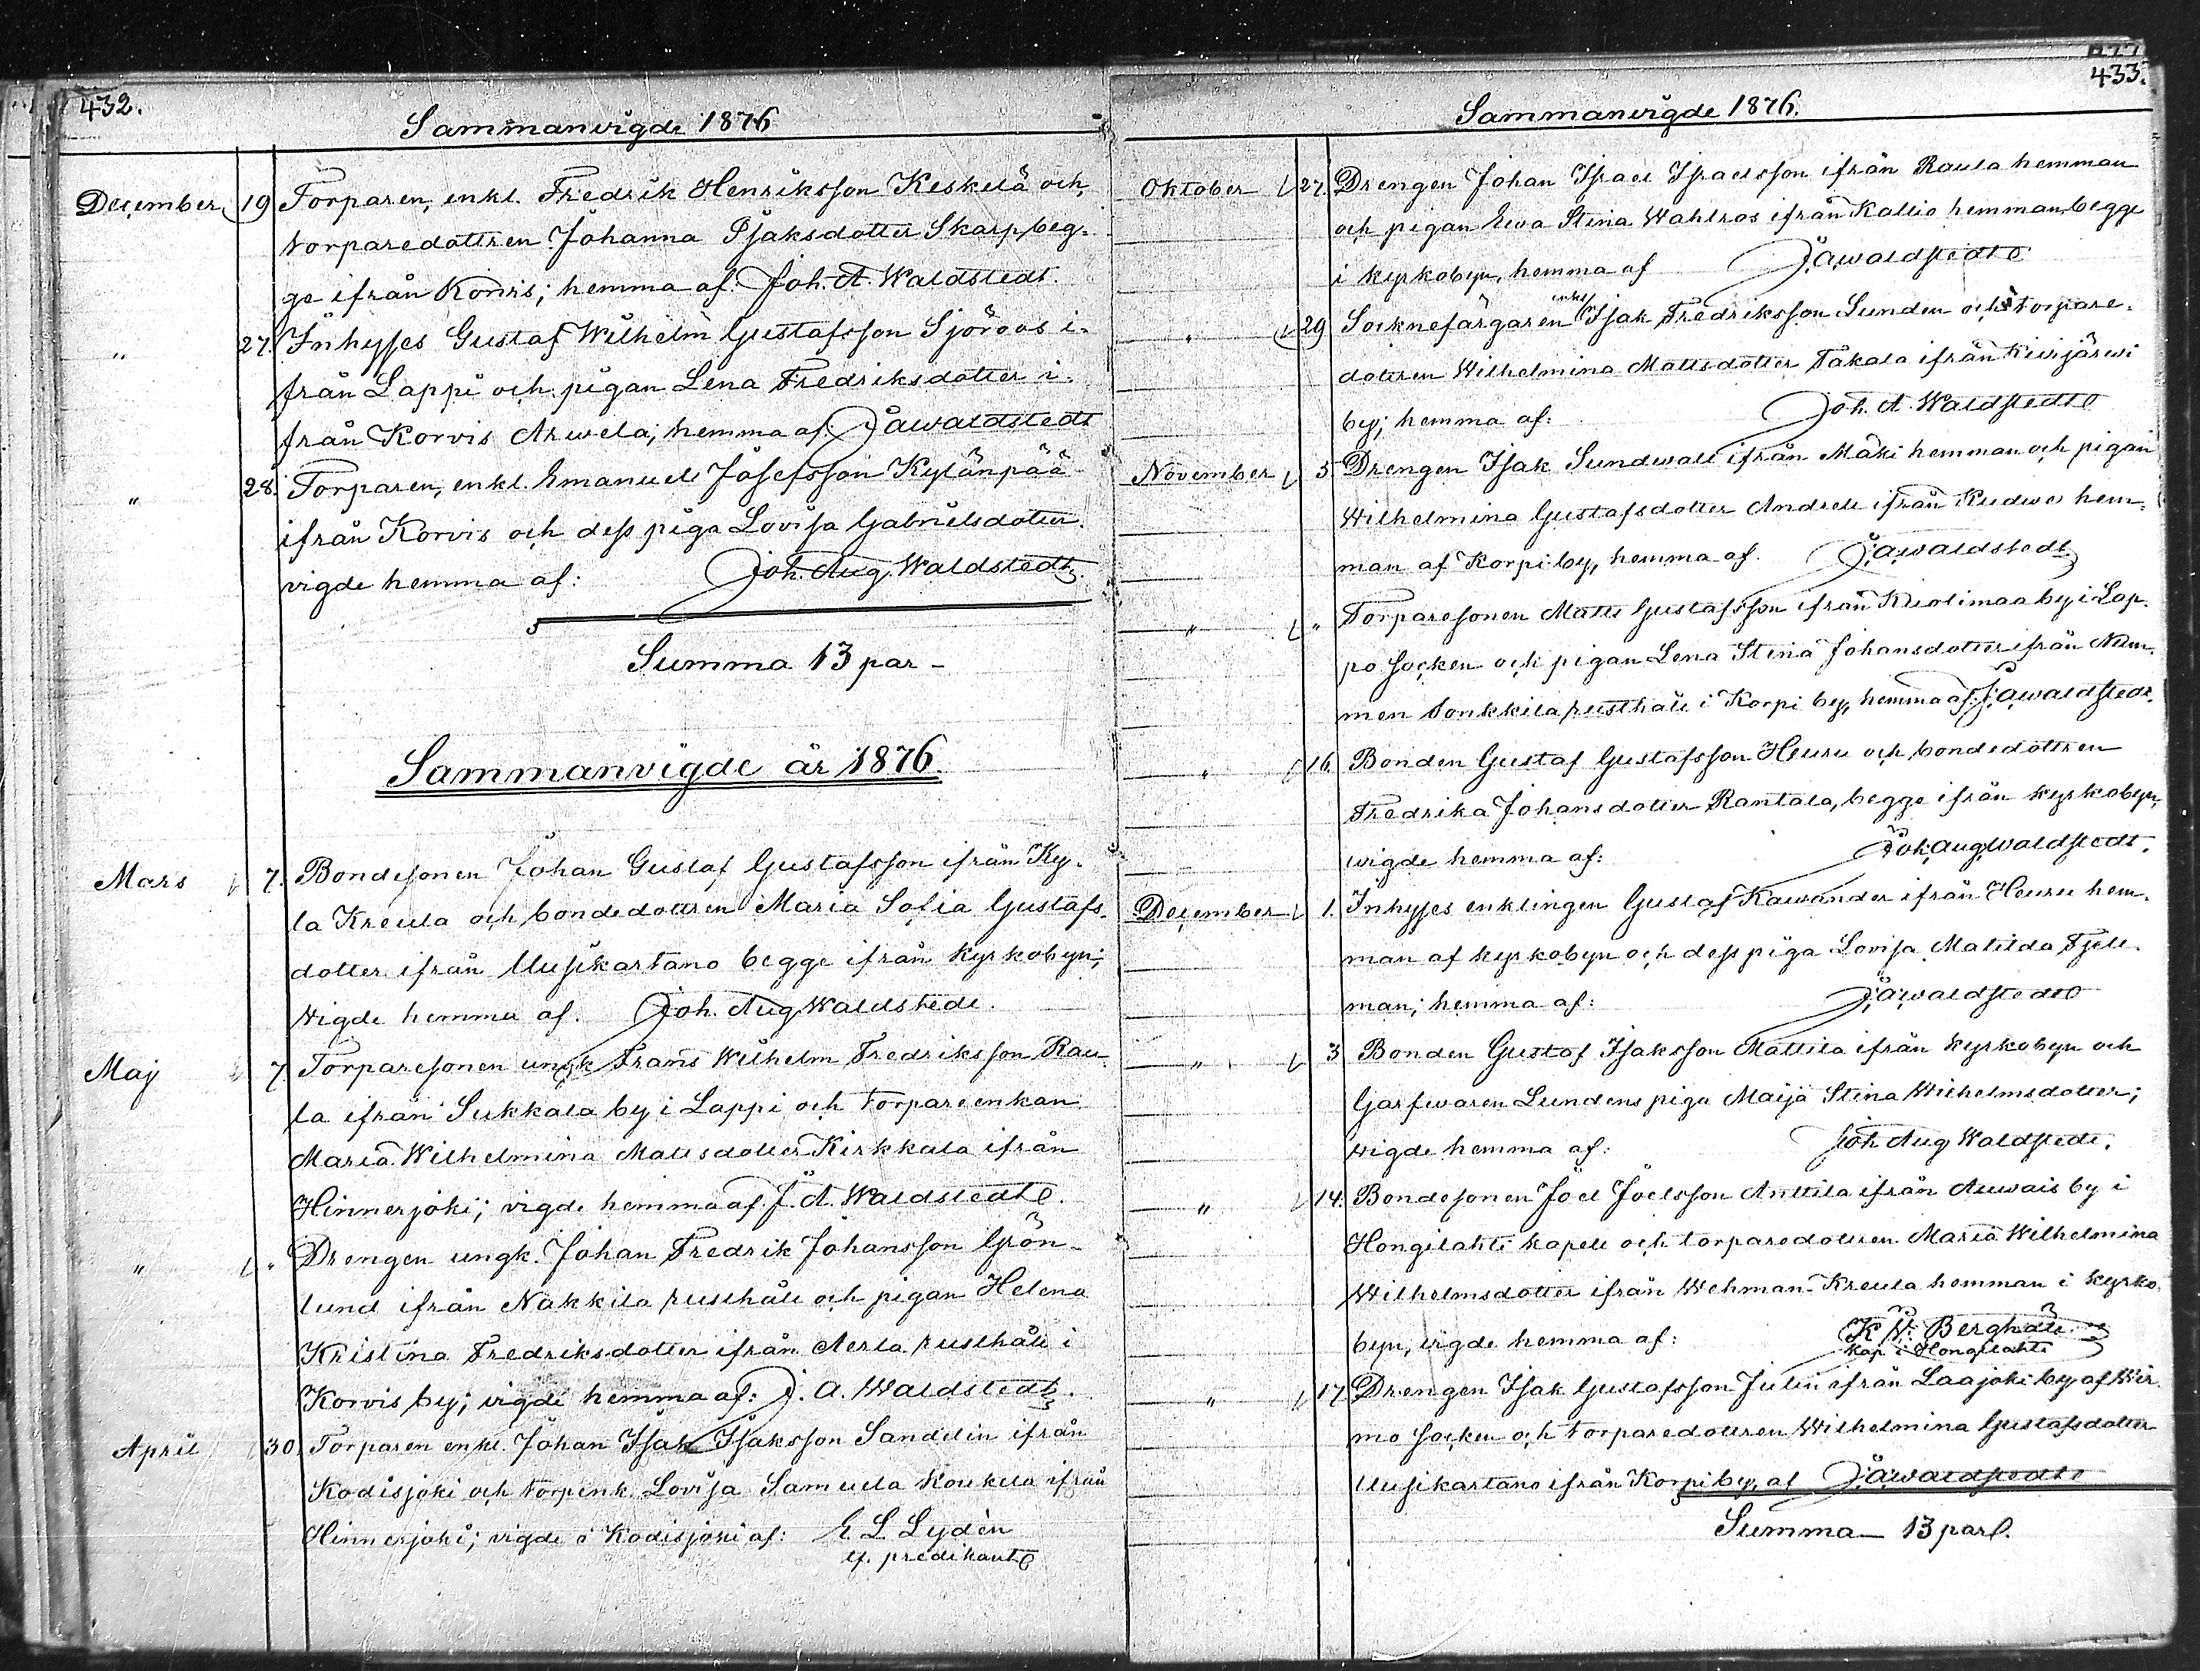 432.
Sammanvigde 1876
December 19 Torparen, enkl. Fredrik Henriksson Keskelä och
torparedottren Johanna Isaksdotter Skarp, beg-
ge ifrån Korvis; hemma af. Joh. A. Waldstedt.
" 27. Inhyses Gustaf Wilhelm Gustafsson Sjöroos i-
från Lappi och pigan Lena Fredriksdotter i-
från Korvis Arwela; hemma af. J A Waldstedt
" 28. Torparen, enkl. Emanuel Josefsson Kylänpää
ifrån Korvis och dess piga Lovisa Gabrielsdotter.
vigde hemma af: Joh. Aug. Waldstedt.
Summa 13 par-
Sammanvigde år 1876.
Mars 7. Bondesonen Johan Gustaf Gustafsson ifrån Ky-
la Kreula och bondedottren Maria Sofia Gustafs-
dotter ifrån Uusikartano begge ifrån kyrkobyn;
vigde hemma af. Joh. Aug Waldstedt.
Maj 7. Torparesonen ungk Frans Wilhelm Fredriksson Rau-
la ifrån Sukkala by i Lappi och torpareenkan
Maria Wilhelmina Mattsdotter Kirkkala ifrån
Hinnerjoki; vigde hemma af. J. A. Waldstedt.
" " Drengen ungk. Johan Fredrik Johansson Grön-
lund ifrån Nakkila rusthåll och pigan Helena
Kristina Fredriksdotter ifrån Aerla rusthåll i
Korvis by; vigde hemma af: J. A. Waldstedt.
April 30. Torparen enkl. Johan Isak Isaksson Sandelin ifrån
Kodisjoki och torpenk. Lovisa Samuela Koukela ifrån
Hinnerjoki; vigde i Kodisjoki af: E. L. Lydén
ef. predikant
433.
Sammanvigde 1876.
Oktober 27. Drengen Johan Israel Israelsson ifrån Raula hemman
och pigan Ewa Stina Wahlros ifrån Kallio hemman, begge
i kyrkobyn, hemma af J. A. Waldstedt
" 29 Socknefärgaren enkl Isak Fredriksson Lunden och torpare-
dottren Wilhelmina Mattsdotter Takala ifrån Kivijärwi
by; hemma af: Joh. A. Waldstedt
November 5 Drengen Isak Sundwall ifrån Mäki hemman och pigan
Wilhelmina Gustafsdotter Andell ifrån hem-
man af Korpi by, hemma af. J. A. Waldstedt
" " Torparesonen Matts Gustafsson ifrån Kuolimaa by i Lap-
po socken och pigan Lena Stina Johansdotter ifrån Num-
men Sonkkila rusthåll i Korpi by, hemma af: J. A. Waldstedt.
" 16. Bonden Gustaf Gustafsson Heuru och bondedottren
Fredrika Johansdotter Rantala, begge ifrån kyrkobyn,
wigde hemma af: Joh. Aug. Waldstedt.
December 1. Inhyses enklingen Gustaf Kawander ifrån Heuru hem-
man af kyrkobyn och dess piga Lovisa Matilda Fjell-
man; hemma af: J. A. Waldstedt
" 3 Bonden Gustaf Isaksson Mattila ifrån kyrkobyn och
Garfwaren Lundens piga Maija Stina Wilhelmsdotter;
vigde hemma af: Joh Aug Waldstedt.
" 14. Bondesonen Joel Joelsson Anttila ifrån Auwais by i
Hongilahti kapell och torparedottren Maria Wilhelmina
Wilhelmsdotter ifrån Wehman-Kreula hemman i kyrko-
byn, vigde hemma af: K. W. Berghäll
kap i Hongilahti
" 17. Drengen Isak Gustafsson Julin ifrån Laajoki by af Wir-
mo socken och torparedottren Wilhelmina Gustafsdotter
Uusikartano ifrån Korpi by, af J. A. Waldstedt
Summa- 13 par.